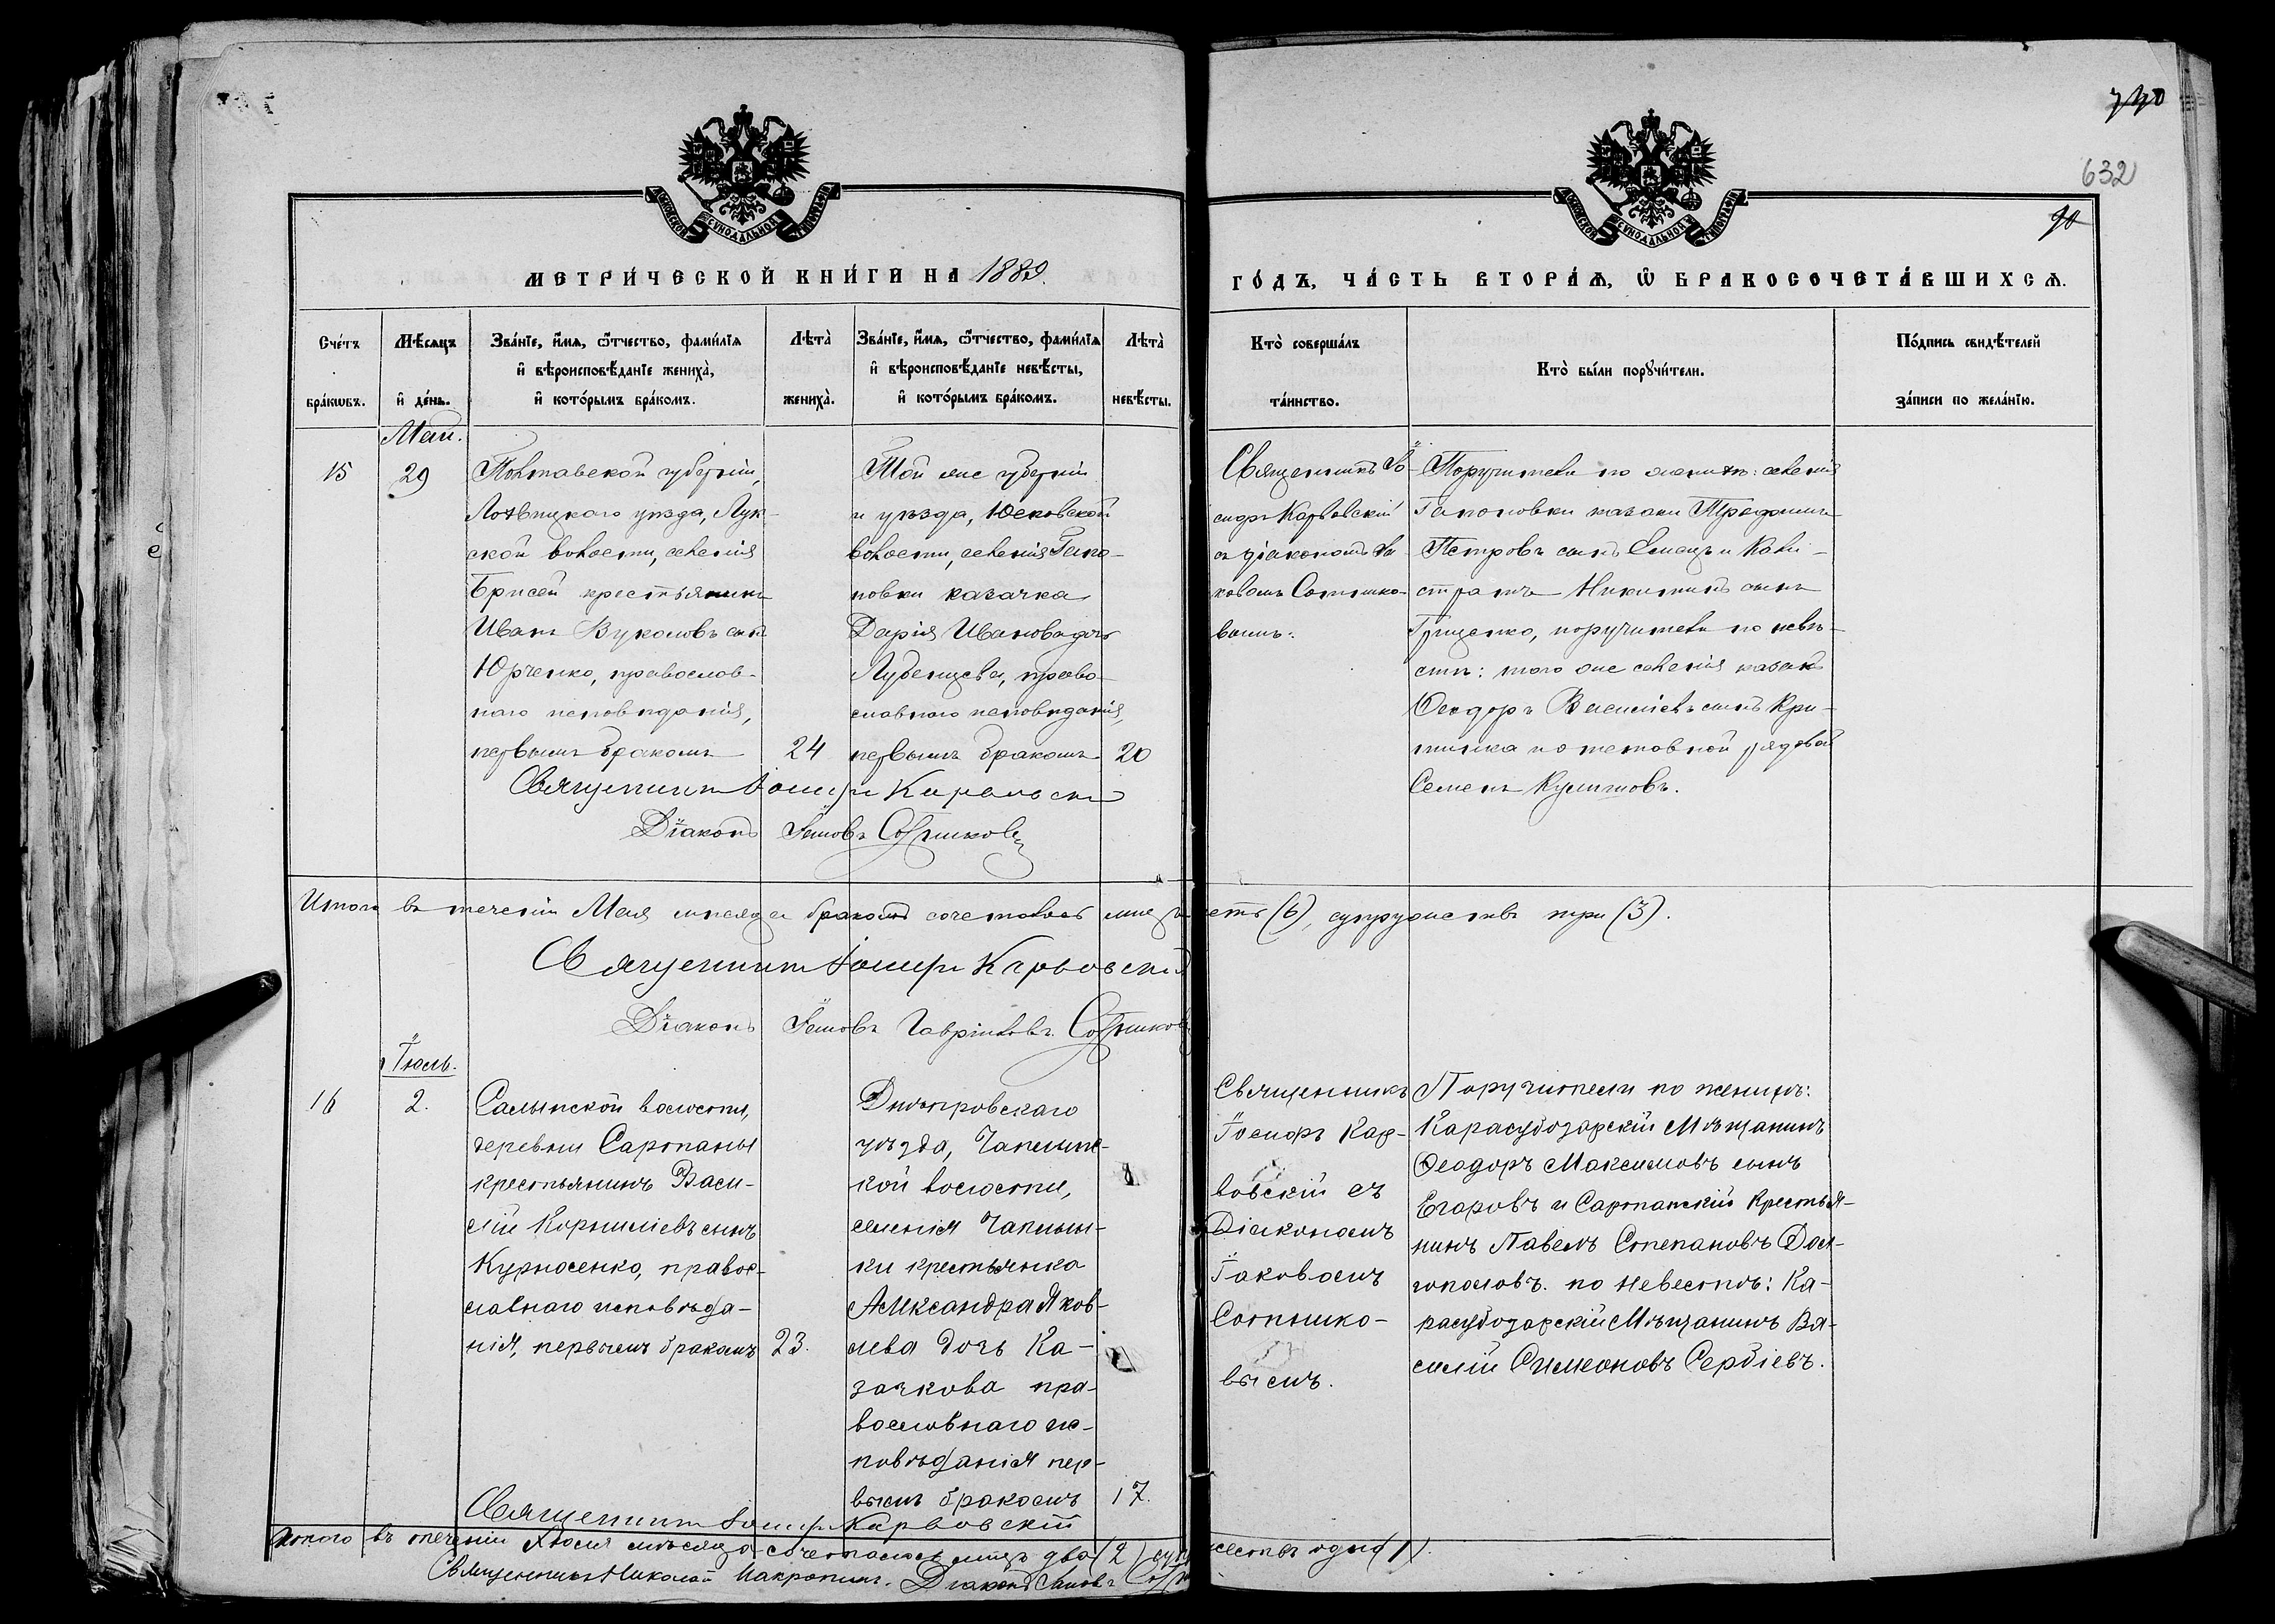 740
632
МОСКОВСКОЙ СѴНОДАЛЬНОЙ ТИПОГРАФІИ
МОСКОВСКОЙ СѴНОДАЛЬНОЙ ТИПОГРАФІИ
МЕТРИ́ЧЕСКОЙ КНИ́ГИ НА 1889.
ГО́ДЪ, ЧА́СТЬ ВТОРА́Ѧ, Ѡ҆ БРАКОСОЧЕТА́ВШИХСѦ.
Сче́тъ бра́кѡвъ.
Мѣ́сѧцъ и҆ де́нь.
Зва́нїе, и҆́мѧ, ѻ҆́тчество, фами́лїѧ
и҆ вѣроисповѣ́данїе жениха̀,
и҆ кото́рымъ бра́комъ.
Лѣта̀ жениха̀.
Зва́нїе, и҆́мѧ, ѻ҆́тчество, фами́лїѧ
и҆ вѣроисповѣ́данїе невѣ́сты,
и҆ кото́рымъ бра́комъ.
Лѣта̀ невѣ́сты.
Кто̀ соверша́лъ
та́инство.
Кто̀ бы́ли порꙋчи́тели.
По́дпись свидѣ́телей
за́писи по жела́нїю.
Май.
15
29
Полтавской губерніи,
Лохвицкаго уѣзда, Лук-
ской волости, селенія
Брисей крестьянинъ
Иванъ Вуколовъ сынъ
Юрченко, православ-
наго исповѣданія,
первымъ бракомъ
24
Той же губерніи
и уѣзда, Юсковской
волости, селенія Гапо-
новки казачка
Дарія Иванова дочь
Лубенцева, право-
славнаго исповѣданія,
первымъ бракомъ
20
Священникъ Іо-
сифъ Карвовскій
съ діакономъ Іа-
ковомъ Сотнико-
вымъ.
Поручители по женихѣ: селенія
Гапоновки казаки Трофимъ
Петровъ сынъ Емецъ и Кали-
стратъ Никитинъ сынъ
Грищенко, поручители по невѣ-
стѣ: того же селенія казакъ
Ѳеодоръ Василіевъ сынъ Кри-
и отставной рядовой
Семенъ Кулишовъ.
Священникъ Іосифъ Карвовскій
Діаконъ Іаковъ Сотниковъ
Итого въ теченіи Мая мѣсяца бракомъ сочеталось лицъ шесть (6), супружествъ три (3).
Священникъ Іосифъ Карвовскій
Діаконъ Іаковъ Гавріиловъ Сотниковъ
Іюль.
16
2.
Салынской волости,
деревни Сартаны
крестьянинъ Васи-
лій Корниліевъ сынъ
Курносенко, правос-
лавнаго исповѣда-
нія, первымъ бракомъ
23.
Днѣпровскаго
уѣзда, Чаплынс-
кой волости,
селенія Чаплын-
ки крестьянка
Александра Яков-
лева дочь Ка-
зачкова пра-
вославнаго ис-
повѣданія пер-
вымъ бракомъ
17.
Священникъ
Іосифъ Кар-
вовскій съ
Діакономъ
Іаковомъ
Сотнико-
вымъ.
Поручители по женихѣ:
Карасубазарскій Мѣщанинъ
Ѳеодоръ Максимовъ сынъ
Егоровъ и Сартанскій Крестья-
нинъ Павелъ Степановъ Дол-
гополовъ. по Невестѣ: Ка-
расубазарскій Мѣщанинъ Ва-
силій Симеоновъ Сербіевъ.
Священникъ Іосифъ Карвовскій
Итого въ теченіи Іюля мѣсяца сочеталось лицъ два (2) супружествъ одно (1).
Священникъ Николай Діаконъ Іаковъ